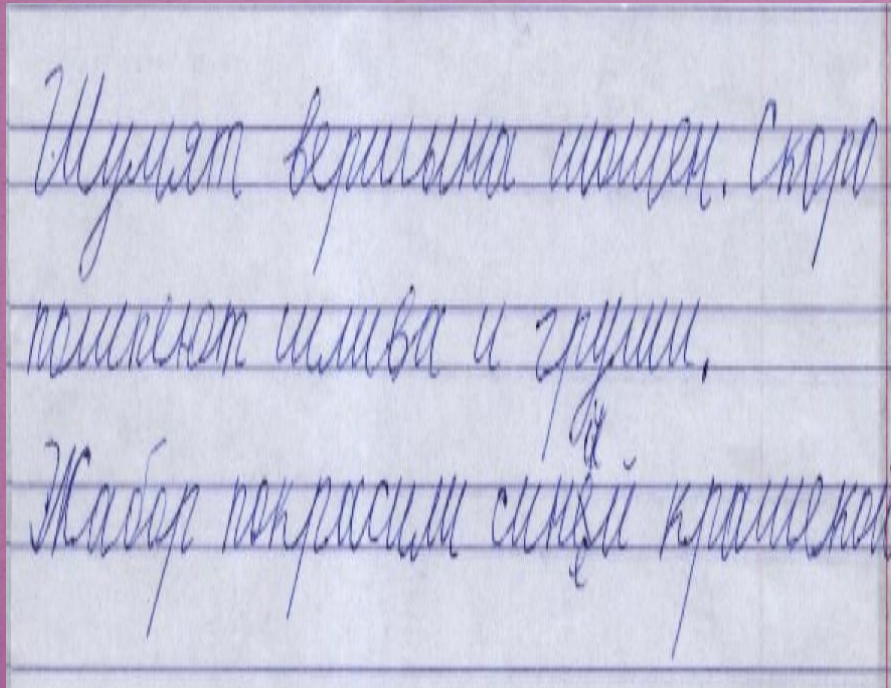 Шумят вершына шошен. Скоро
пошпеют шлива и груши.
Жабор покрасили синей крашекой